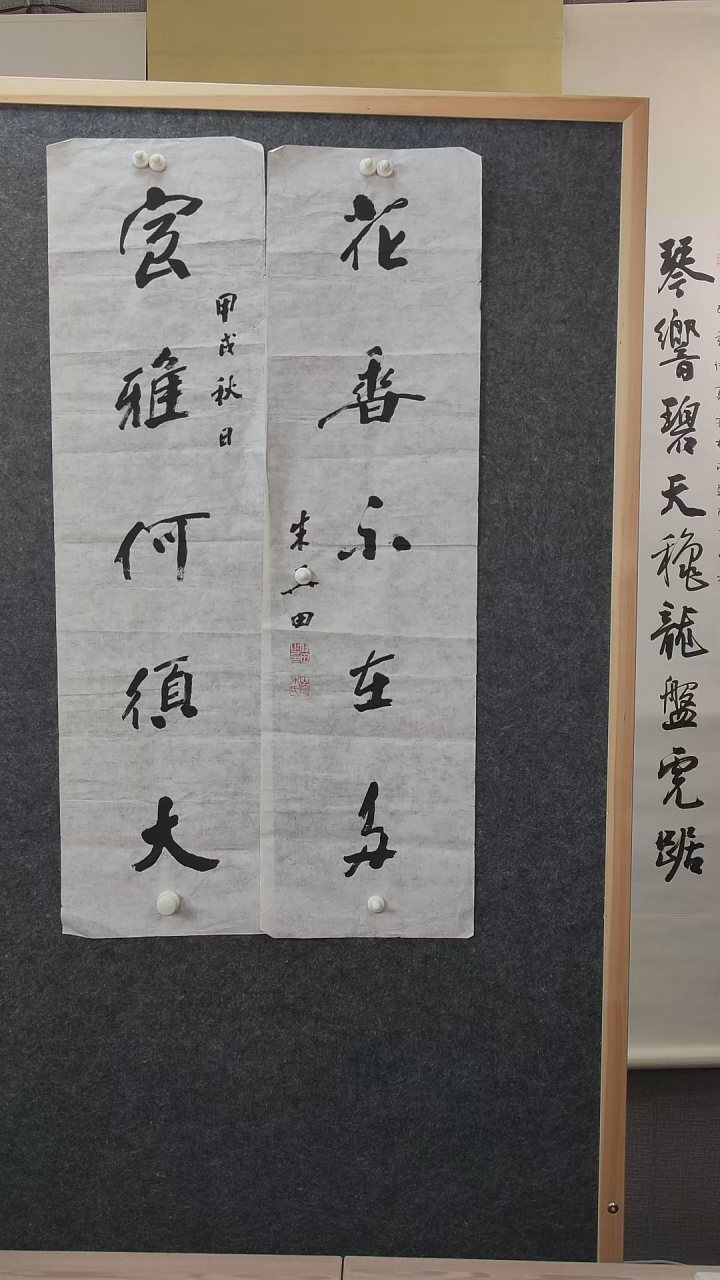 琴響碧天穐龍盤虎踞
花香不在多
朱 田
甲戌秋日
室雅何須大